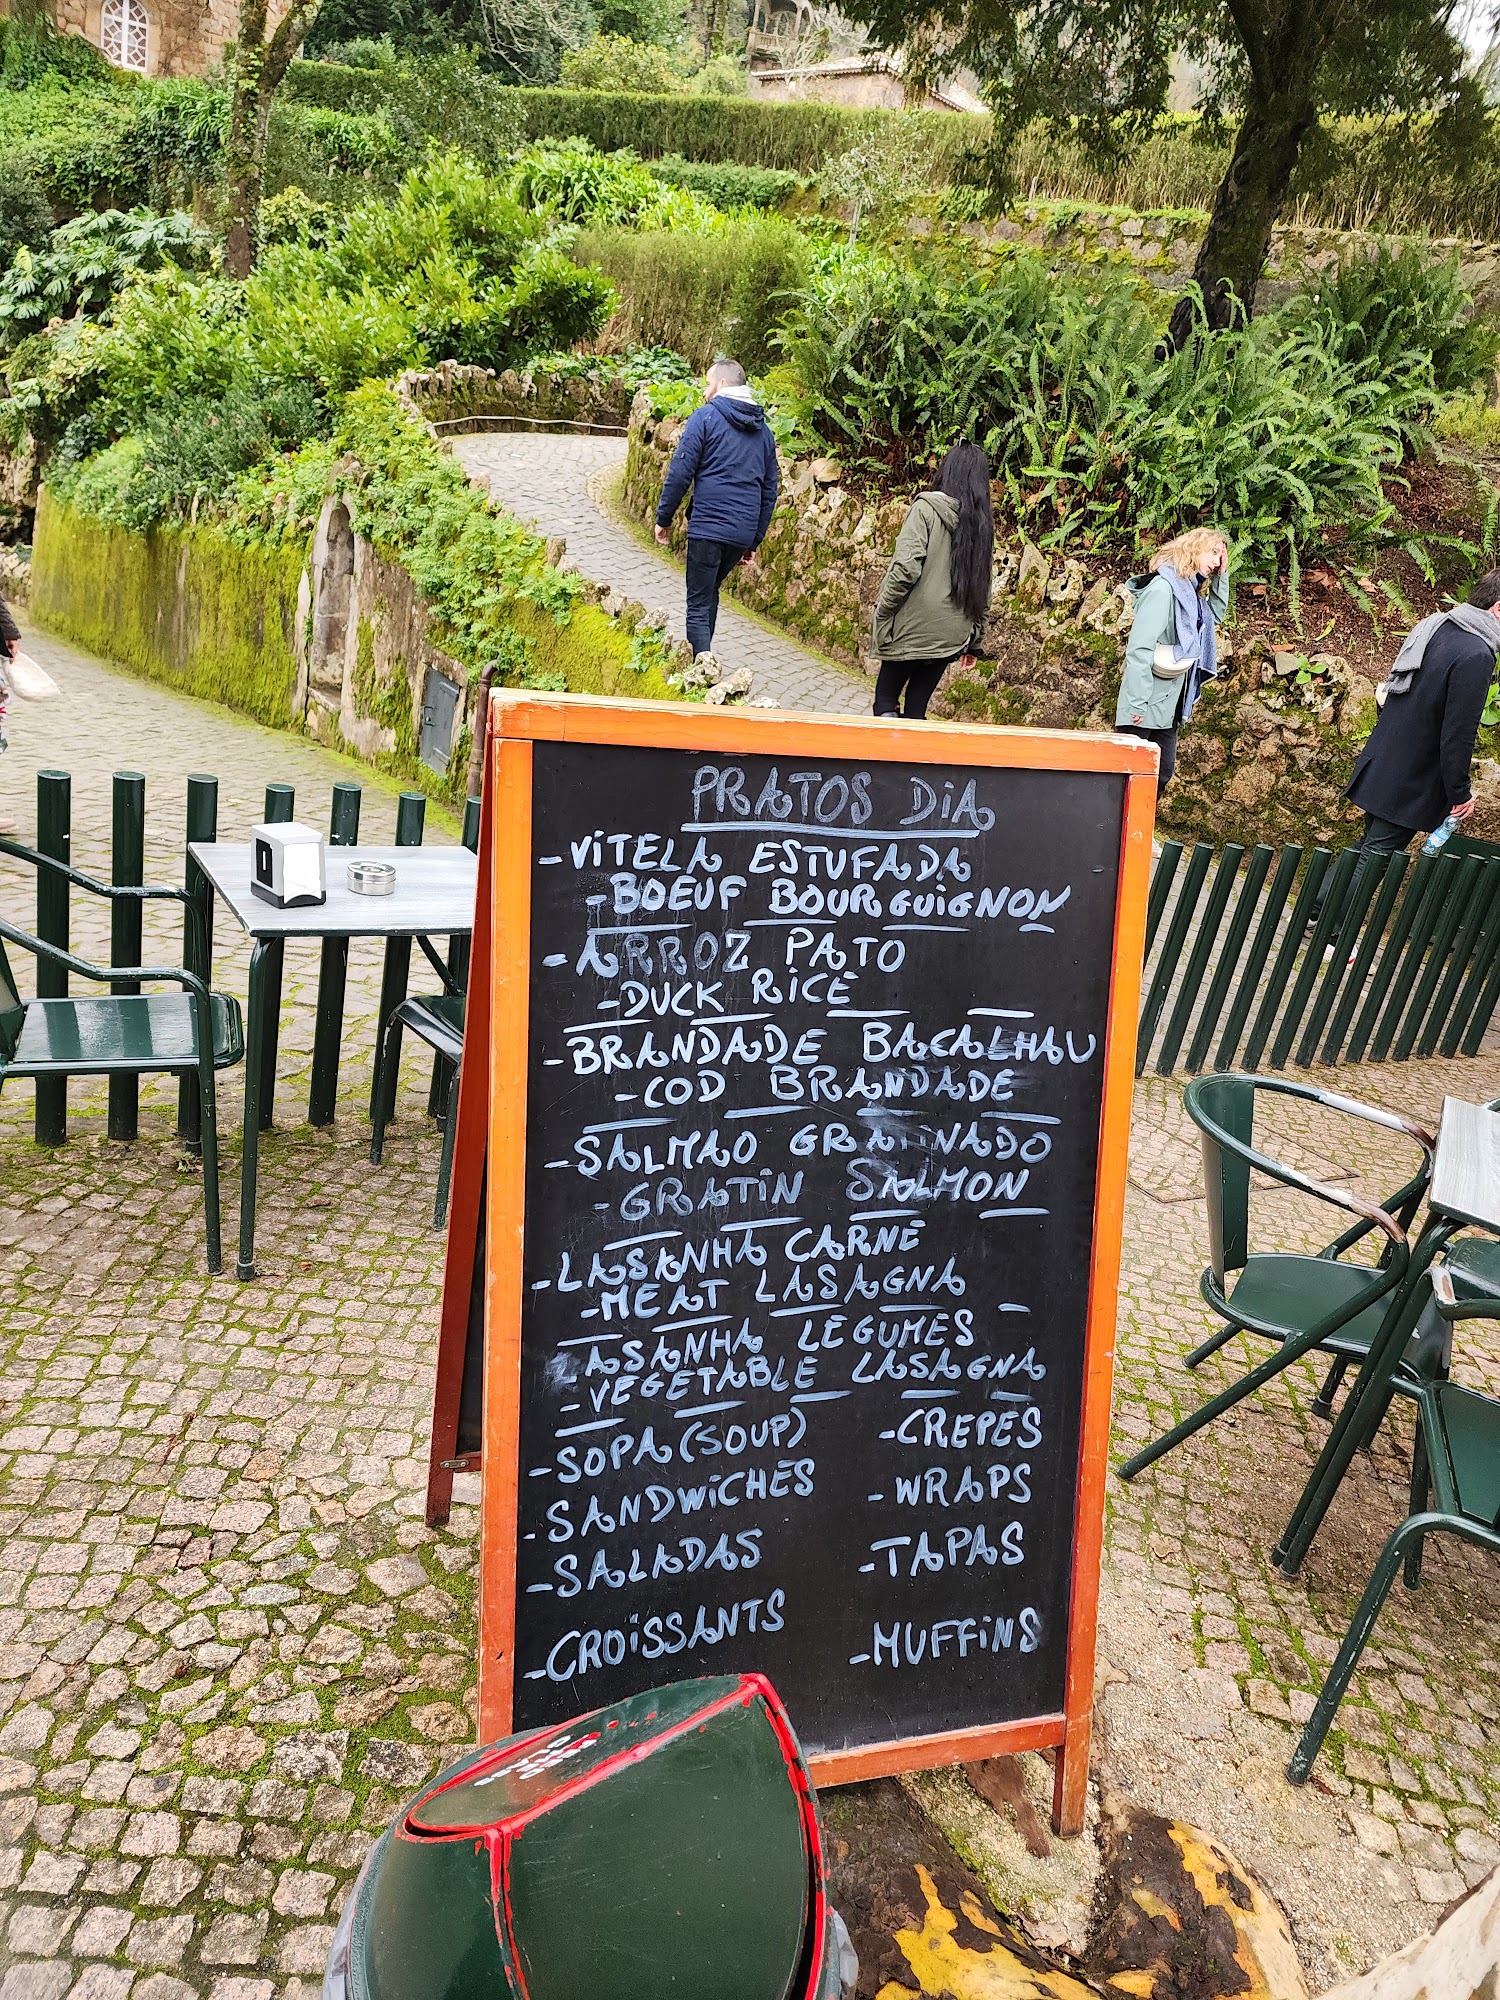 PRATOS DIA
-VITELA ESTUFADA
-BOEUF BOURGUIGNON
-ARROZ PATO
-DUCK RICE
-BRANDADE BACALHAU
-COD BRANDADE
-SALMAO GRATINADO
-GRATIN SALMON
-LASANHA CARNE
-MEAT LASAGNA
LASANHA LEGUMES
-VEGETABLE LASAGNA
-SOPA (SOUP) -CREPES
-SANDWICHES -WRAPS
-SALADAS -TAPAS
-CROISSANTS -MUFFINS